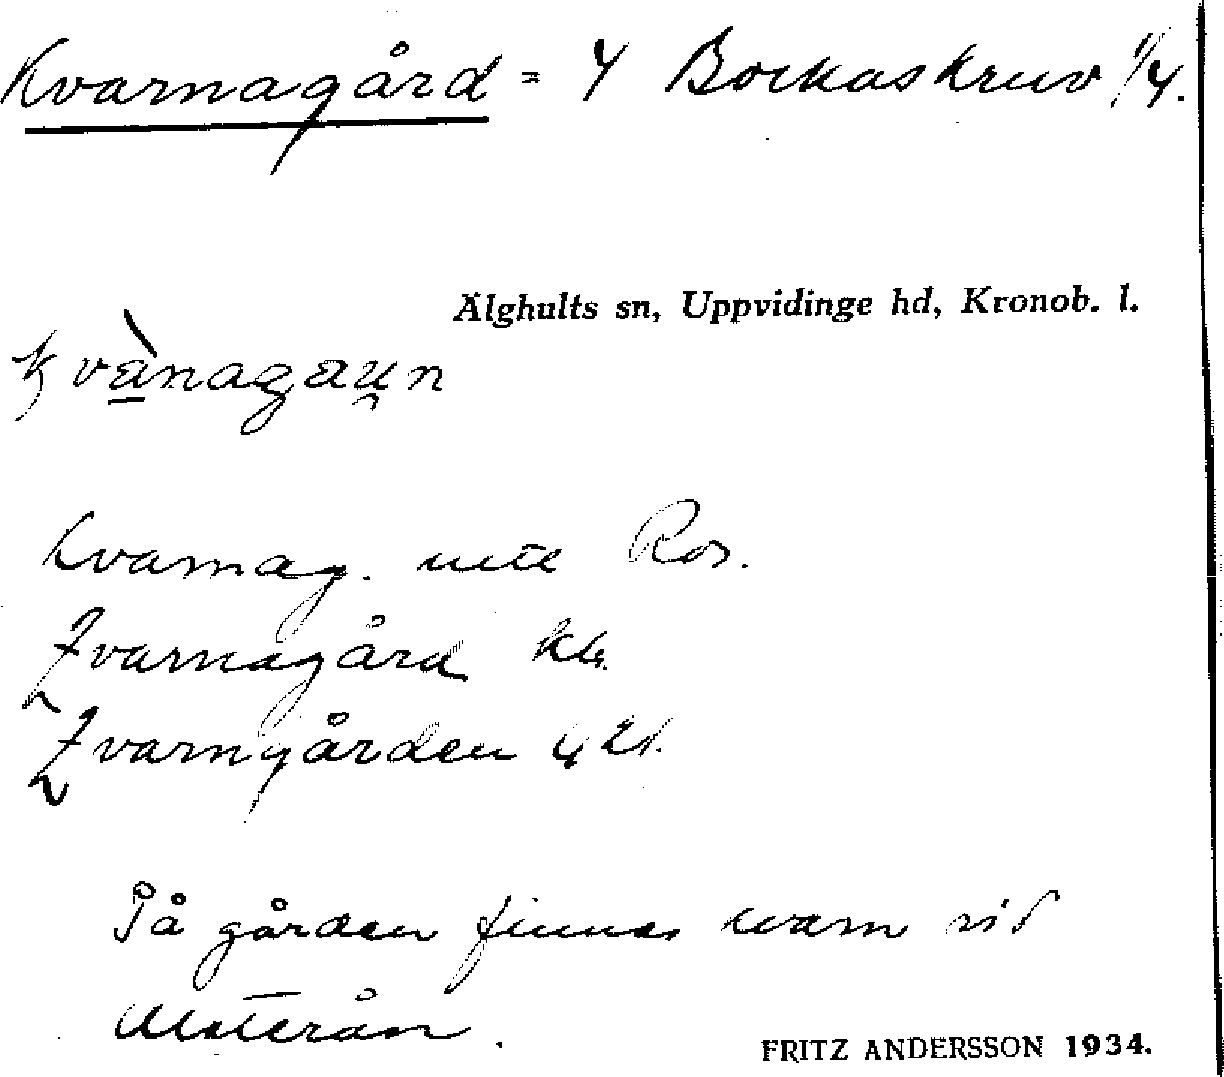 Kvarnagård = 4 Bockaskruv 1/4.
Älghults sn, Uppvidinge hd, Kronob. l.
kvànagaun
Kvarnag. inte Ros.
Kvarnagård
Kvarngården
På gården finnes kvarn vid
Mateån.
FRITZ ANDERSSON 1934.